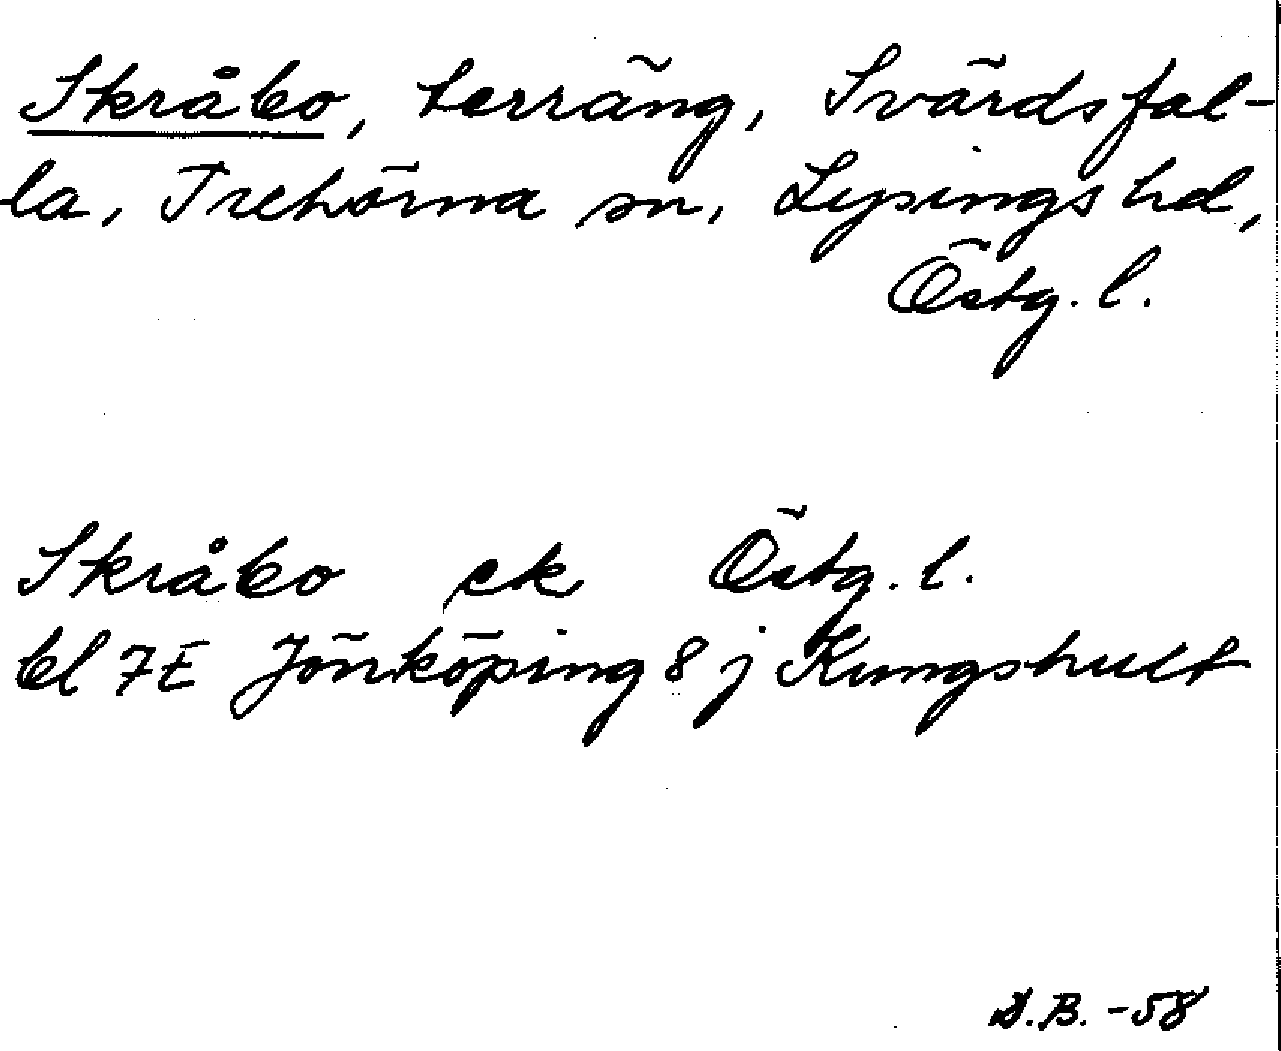 Skråbo, terräng, Svärdsfal-
la, Trehörna sn, Lysings hd,
Östg. l.
Skråbo ek Östg. l.
bl 7E Jönköping 8 j Kungshult
S.B. -58